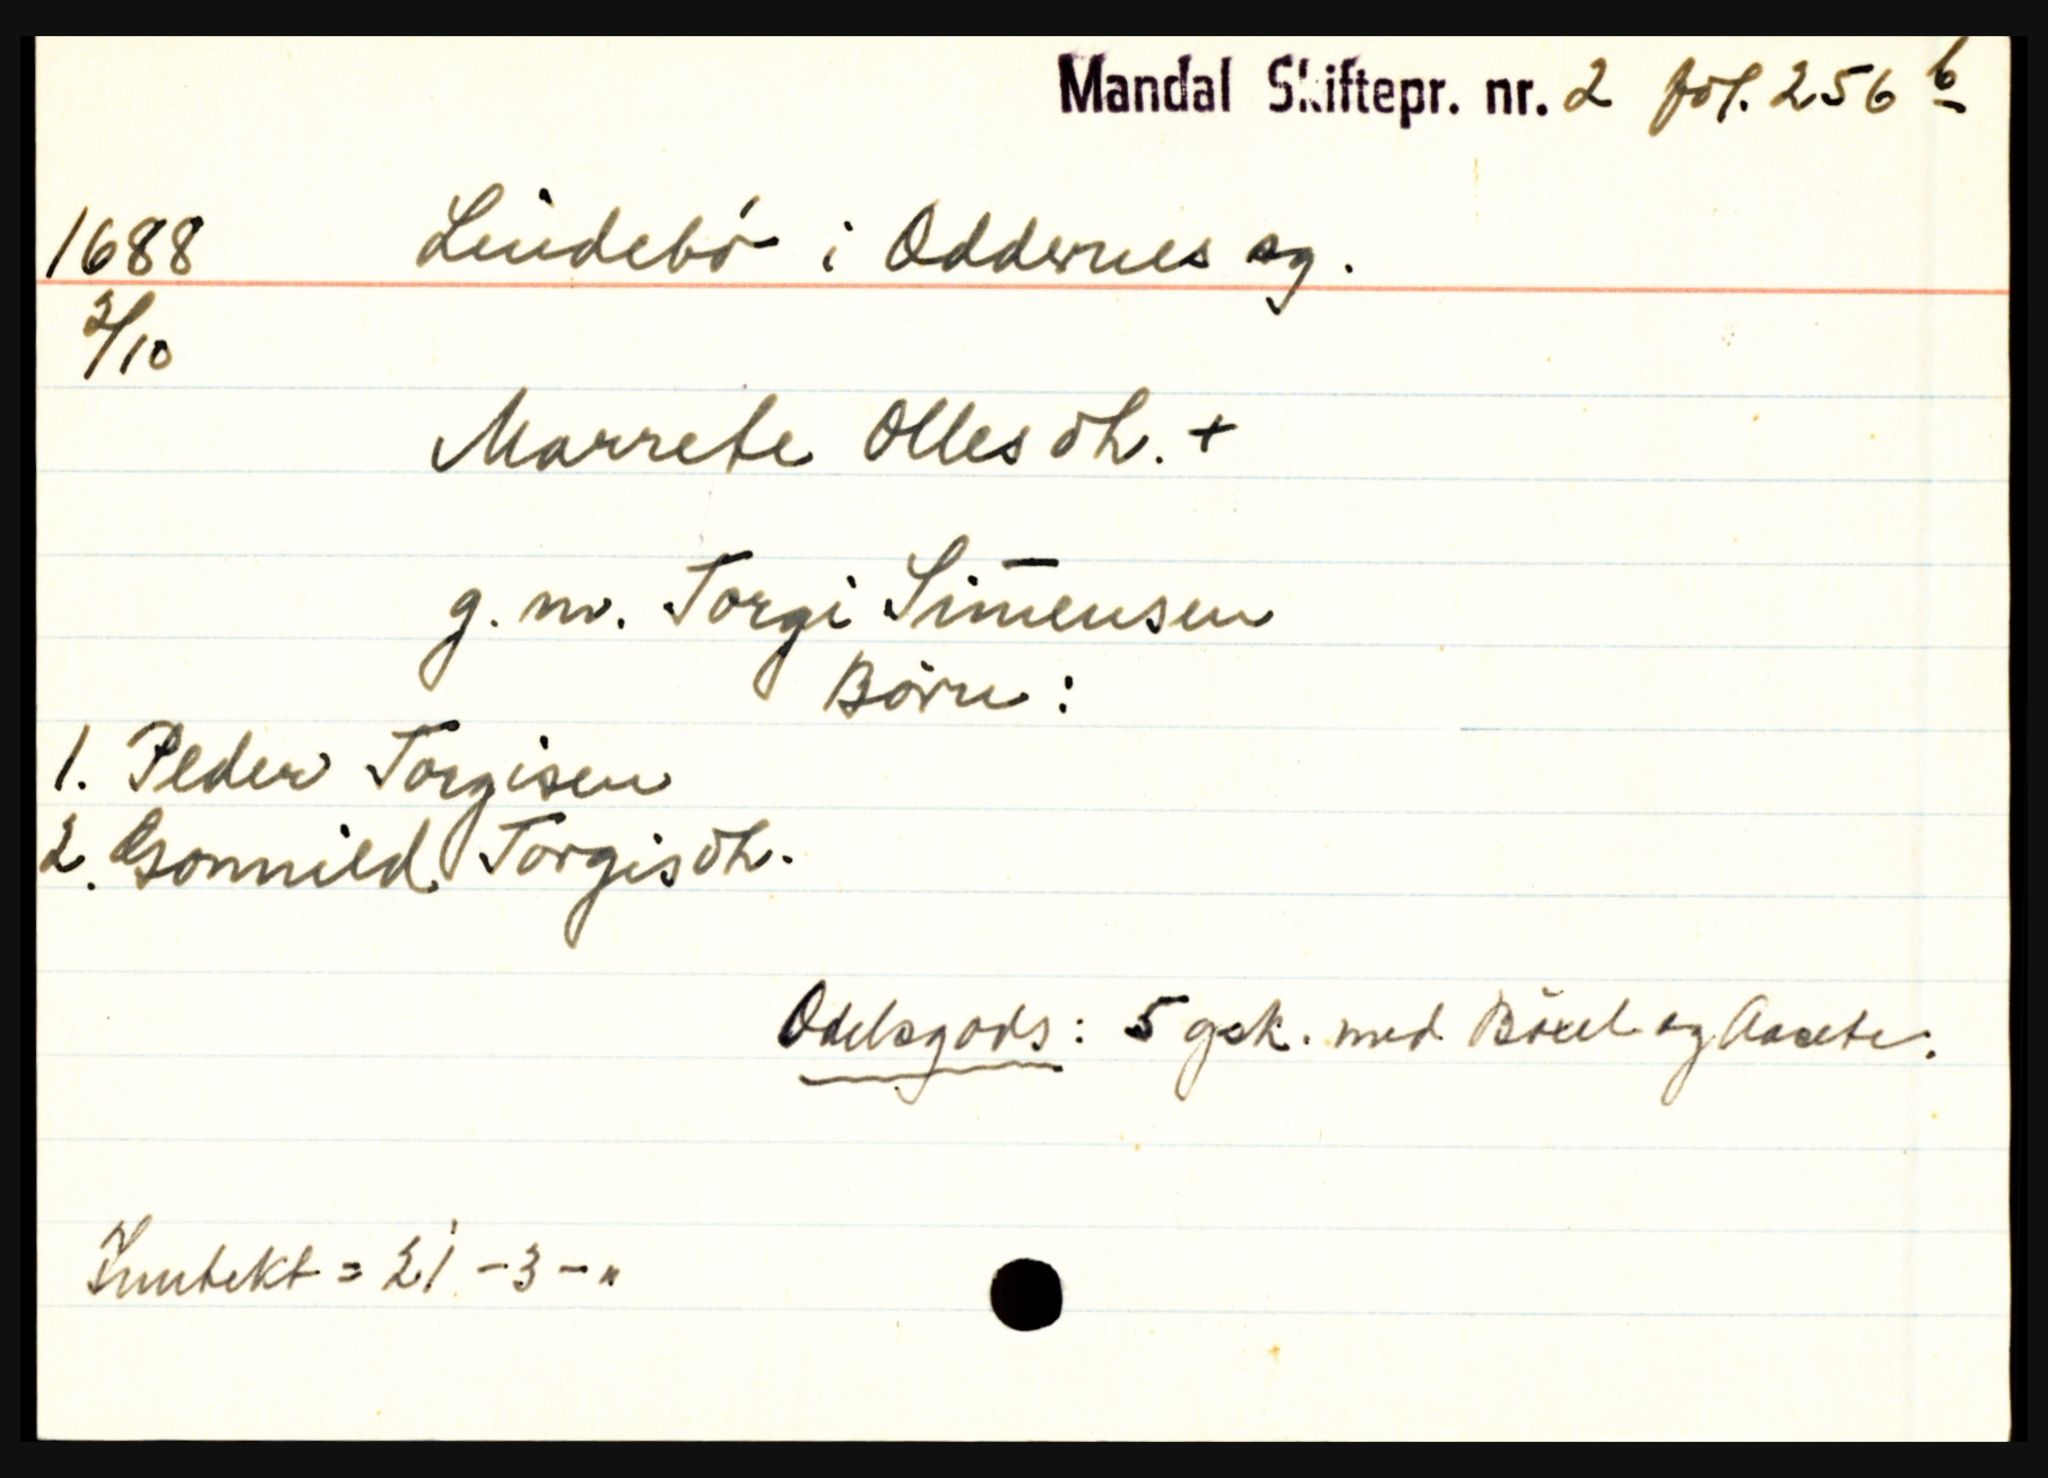 Mandal Skiftepr. nr. 2 fol. 256 b
1688 Lindebö i Oddernes sg.
2/10
Marrete Ollesdh. +
g. m. Torgi Simensen
Börn :
1. Peder Torgisen
2. Gonnild Torgisdh.
Odelsgods : 5 gsk. med Böxel og Aasete.
Inntekt = 21 - 3 - "